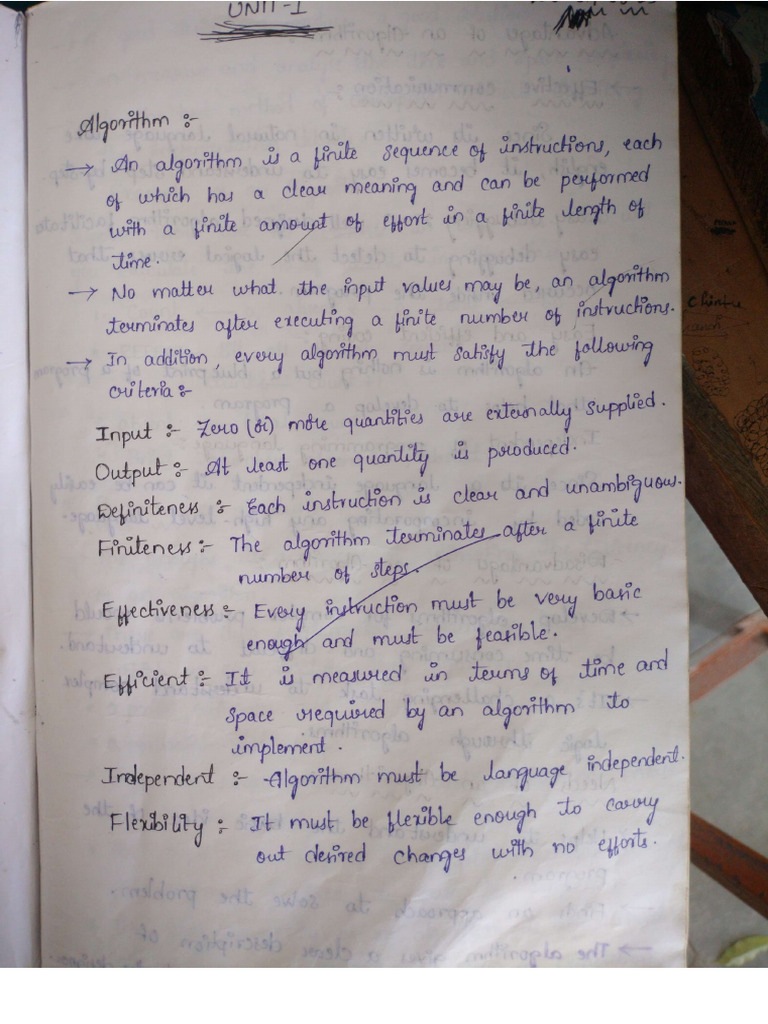 UNIT-I
Algorithm :-
→ An algorithm is a finite sequence of instructions, each
of which has a clear meaning and can be performed
with a finite amount of effort in a finite length of
time.
→ No matter what the input values may be, an algorithm
terminates after executing a finite number of instructions.
→ In addition, every algorithm must satisfy the following
criteria :-
Input :- Zero (or) more quantities are externally supplied.
Output :- At least one quantity is produced.
Definiteness :- Each instruction is clear and unambiguous.
Finiteness :- The algorithm terminates after a finite
number of steps.
Effectiveness :- Every instruction must be very basic
enough and must be feasible.
Efficient :- It is measured in terms of time and
space required by an algorithm to
implement.
Independent :- Algorithm must be language independent.
Flexibility :- It must be flexible enough to carry
out desired changes with no efforts.